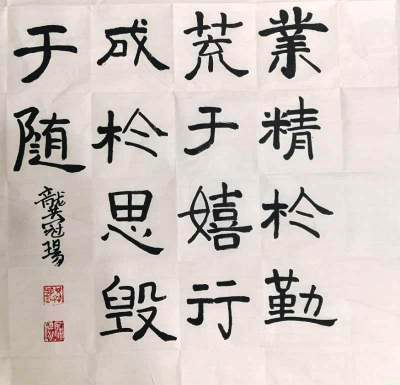 業精扵勤
荒于嬉行
成扵思毁
于随
龔冠瑒